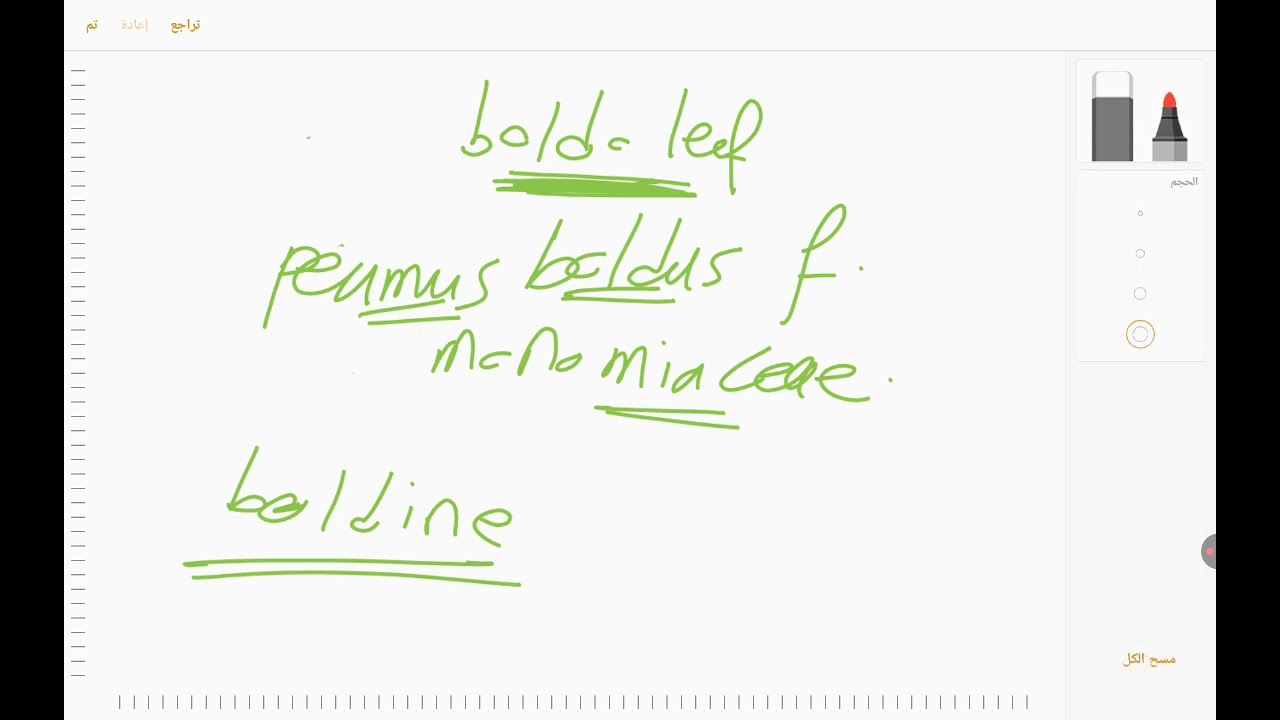 تم إعادة تراجع
boldo leaf
peumus boldus f.
monomiaceae.
boldine
الحجم
مسح الكل